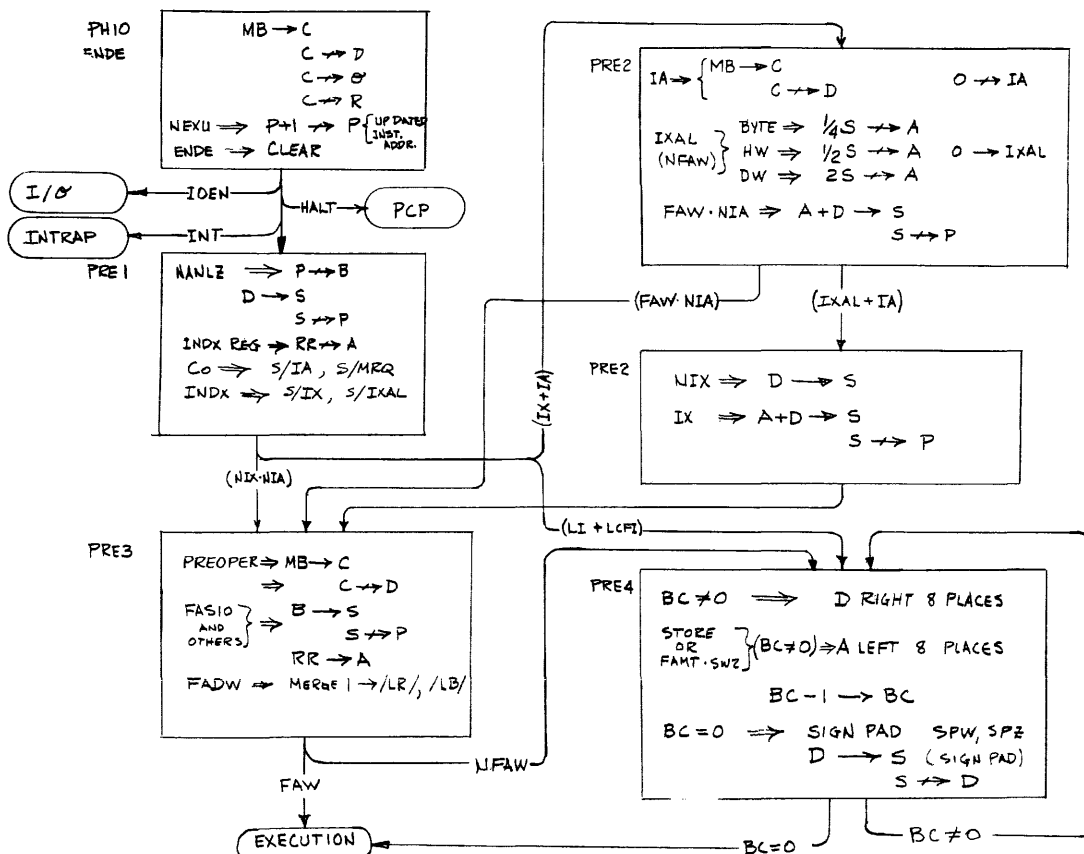 PH10
ENDE
MB → C
C ↛ D
C ↛ O
C ↛ R
NEXU ⇒ P+1 ↛ P { UPDATED INST. ADDR.
ENDE ⇒ CLEAR
I/O
IOEN
HALT
PCP
INTRAP
INT
PRE1
NANLZ ⇒ P ↛ B
D → S
S ↛ P
INDX REG ⇒ RR ↛ A
C0 ⇒ S/IA, S/MRQ
INDX ⇒ S/IX, S/IXAL
(NIX·NIA)
(IX+IA)
(LI + LCFI)
PRE2
IA ⇒ { MB → C
C ↛ D
0 ↛ IA
IXAL (NFAW) }
BYTE ⇒ 1/4 S ↛ A
HW ⇒ 1/2 S ↛ A 0 → IXAL
DW ⇒ 2S ↛ A
FAW·NIA ⇒ A+D → S
S ↛ P
(FAW·NIA)
(IXAL+IA)
PRE2
NIX ⇒ D → S
IX ⇒ A+D → S
S ↛ P
PRE3
PREOPER ⇒ MB → C
⇒ C ↛ D
FASIO AND OTHERS } ⇒ B → S
S ↛ P
RR → A
FADW ⇒ MERGE 1 → /LR/, /LB/
NFAW
FAW
EXECUTION
PRE4
BC≠0 ⇒ D RIGHT 8 PLACES
STORE OR FAMT·SW2 } (BC≠0) ⇒ A LEFT 8 PLACES
BC-1 → BC
BC=0 ⇒ SIGN PAD SPW, SPZ
D → S (SIGN PAD)
S ↛ D
BC=0
BC≠0